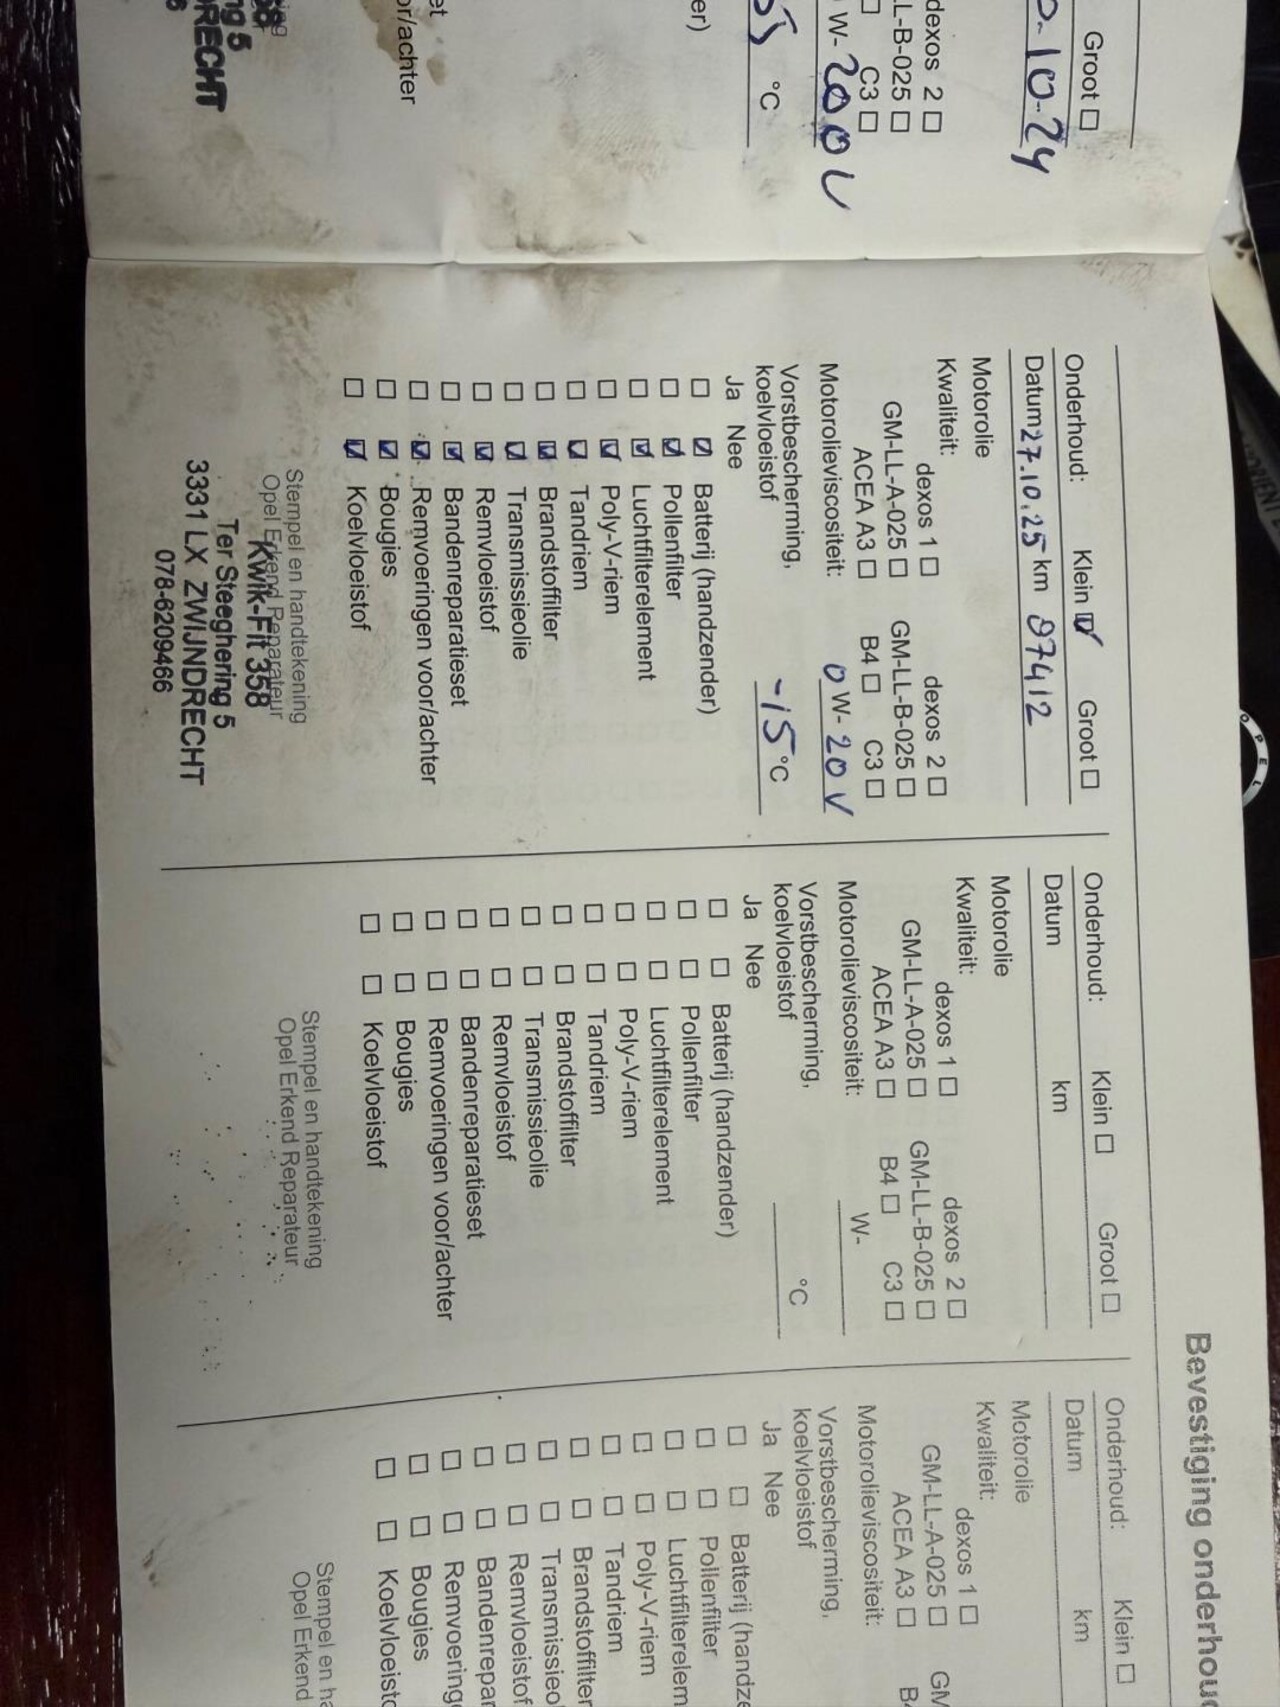 Bevestiging onderhou
Groot ☐
10-24
dexos 2 ☐
LL-B-025 ☐
C3 ☐
W-20 0 V
°C
er)
et
or/achter
ng 5
RECHT
Onderhoud: Klein ☑ Groot ☐
Datum 27.10.25 km 87412
Motorolie
Kwaliteit: dexos 1 ☐ dexos 2 ☐
GM-LL-A-025 ☐ GM-LL-B-025 ☐
ACEA A3 ☐ B4 ☐ C3 ☐
Motorolieviscositeit: 0 W- 20 V
Vorstbescherming,
koelvloeistof -15 °C
Ja Nee
☐ ☑ Batterij (handzender)
☐ ☑ Pollenfilter
☐ ☑ Luchtfilterelement
☐ ☑ Poly-V-riem
☐ ☑ Tandriem
☐ ☑ Brandstoffilter
☐ ☑ Transmissieolie
☐ ☑ Remvloeistof
☐ ☑ Bandenreparatieset
☐ ☑ Remvoeringen voor/achter
☐ ☑ Bougies
☐ ☑ Koelvloeistof
Stempel en handtekening
Opel Erkend Reparateur
Kwik-Fit 358
Ter Steeghering 5
3331 LX ZWIJNDRECHT
078-6209466
Onderhoud: Klein ☐ Groot ☐
Datum km
Motorolie
Kwaliteit: dexos 1 ☐ dexos 2 ☐
GM-LL-A-025 ☐ GM-LL-B-025 ☐
ACEA A3 ☐ B4 ☐ C3 ☐
Motorolieviscositeit: W-
Vorstbescherming,
koelvloeistof °C
Ja Nee
☐ ☐ Batterij (handzender)
☐ ☐ Pollenfilter
☐ ☐ Luchtfilterelement
☐ ☐ Poly-V-riem
☐ ☐ Tandriem
☐ ☐ Brandstoffilter
☐ ☐ Transmissieolie
☐ ☐ Remvloeistof
☐ ☐ Bandenreparatieset
☐ ☐ Remvoeringen voor/achter
☐ ☐ Bougies
☐ ☐ Koelvloeistof
Stempel en handtekening
Opel Erkend Reparateur
Onderhoud: Klein ☐
Datum km
Motorolie
Kwaliteit: dexos 1 ☐
GM-LL-A-025 ☐ GM
ACEA A3 ☐ B4
Motorolieviscositeit:
Vorstbescherming,
koelvloeistof
Ja Nee
☐ ☐ Batterij (handze
☐ ☐ Pollenfilter
☐ ☐ Luchtfilterelem
☐ ☐ Poly-V-riem
☐ ☐ Tandriem
☐ ☐ Brandstoffilter
☐ ☐ Transmissieo
☐ ☐ Remvloeistof
☐ ☐ Bandenrepar
☐ ☐ Remvoering
☐ ☐ Bougies
☐ ☐ Koelvloeisto
Stempel en ha
Opel Erkend
OPEL